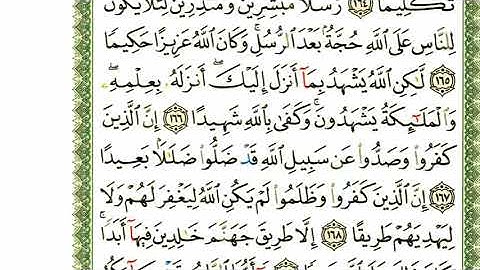 تَكْلِيمًا ١٦٤ رُّسُلًا مُّبَشِّرِينَ وَمُنذِرِينَ لِئَلَّا يَكُونَ
لِلنَّاسِ عَلَى ٱللَّهِ حُجَّةٌۢ بَعْدَ ٱلرُّسُلِ ۚ وَكَانَ ٱللَّهُ عَزِيزًا حَكِيمًا
١٦٥ لَّٰكِنِ ٱللَّهُ يَشْهَدُ بِمَآ أَنزَلَ إِلَيْكَ ۖ أَنزَلَهُۥ بِعِلْمِهِۦ ۖ
وَٱلْمَلَٰٓئِكَةُ يَشْهَدُونَ ۚ وَكَفَىٰ بِٱللَّهِ شَهِيدًا ١٦٦ إِنَّ ٱلَّذِينَ
كَفَرُوا۟ وَصَدُّوا۟ عَن سَبِيلِ ٱللَّهِ قَدْ ضَلُّوا۟ ضَلَٰلًۢا بَعِيدًا
١٦٧ إِنَّ ٱلَّذِينَ كَفَرُوا۟ وَظَلَمُوا۟ لَمْ يَكُنِ ٱللَّهُ لِيَغْفِرَ لَهُمْ وَلَا
لِيَهْدِيَهُمْ طَرِيقًا ١٦٨ إِلَّا طَرِيقَ جَهَنَّمَ خَٰلِدِينَ فِيهَآ أَبَدًا ۚ